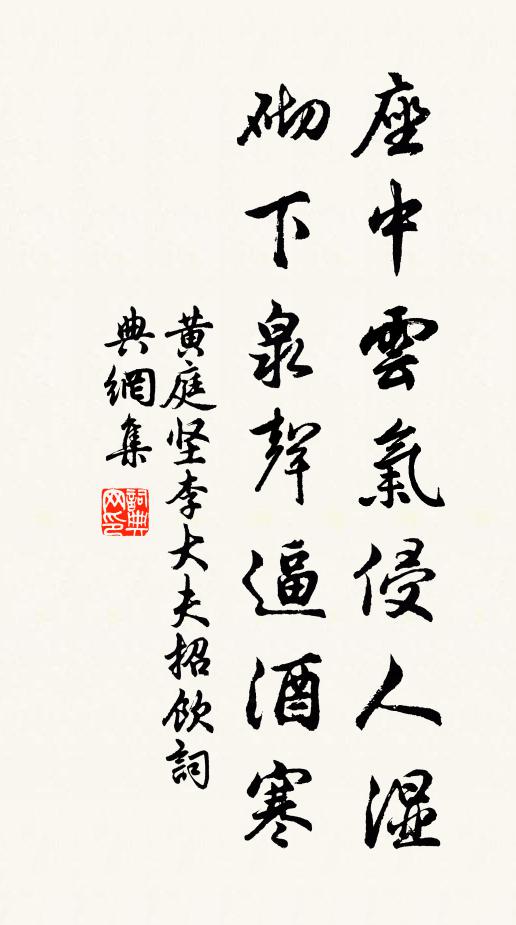 座中雲氣侵人濕
砌下泉聲逼酒寒
黄庭坚李大夫招飲詞
典網集
詞典网印